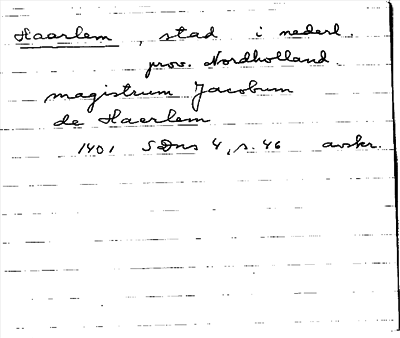 Haarlem, stad i nederl.
prov. Nordholland.
magistrum Jacobum
de Haerlem
1401 SDns 4, s. 46 avskr.